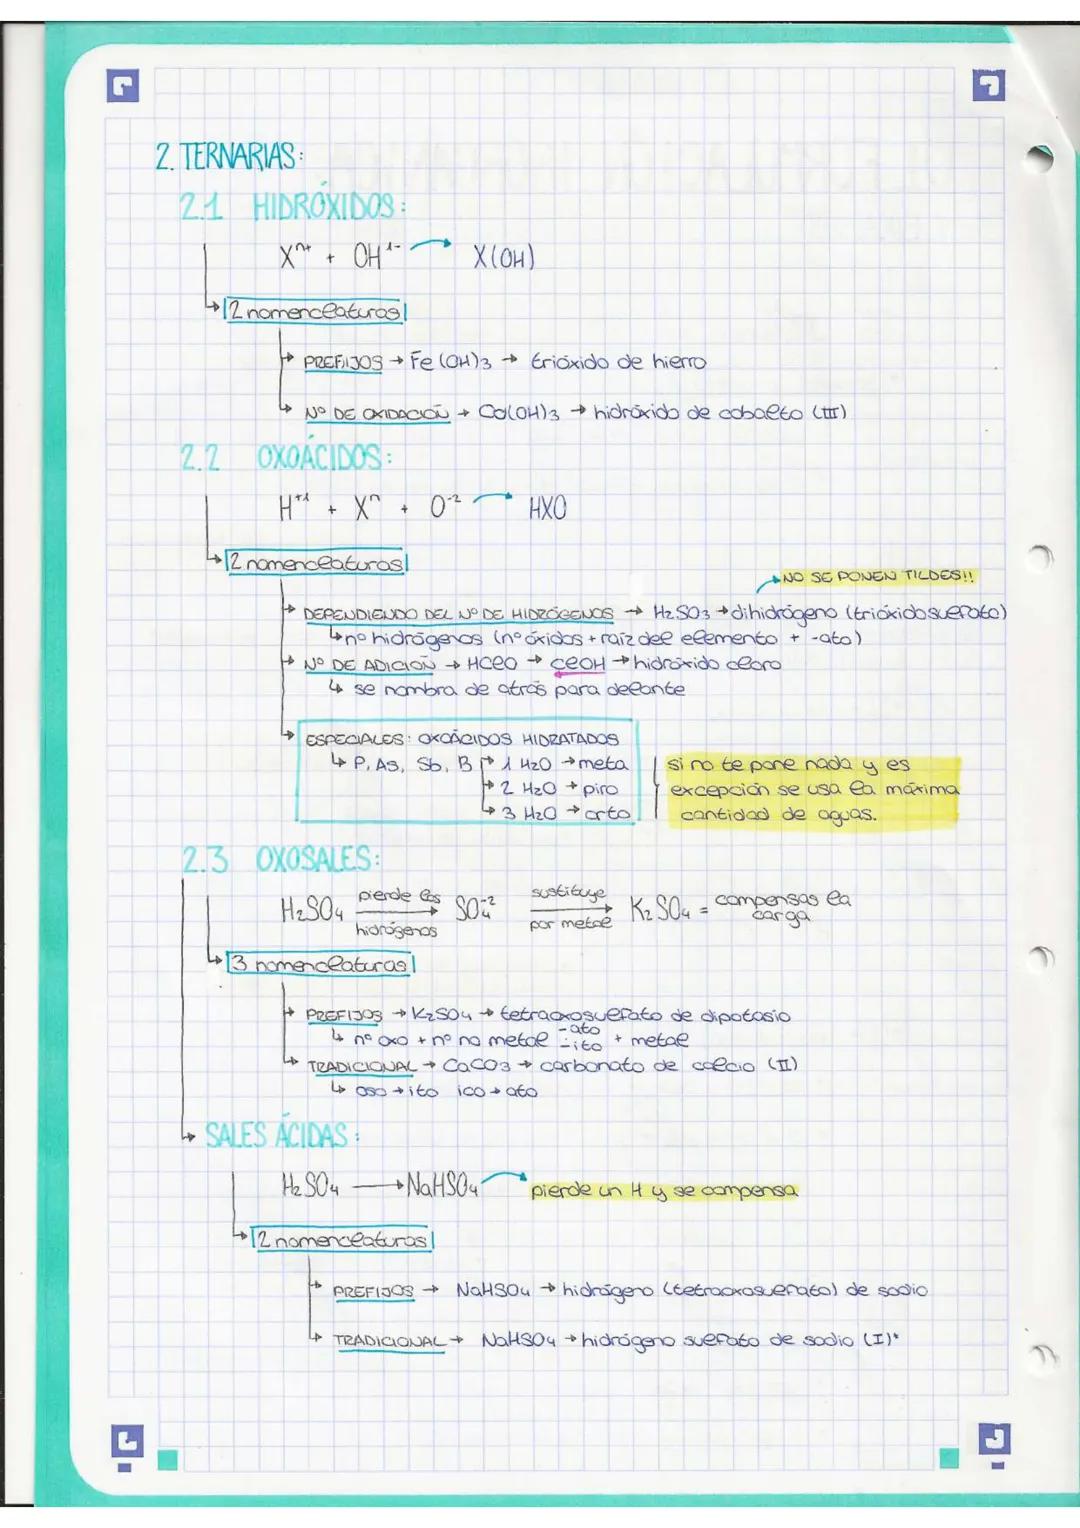 2. TERNARIAS:
2.1 HIDRÓXIDOS:
Xⁿ⁺ + OH¹⁻ → X(OH)
2 nomenclaturas
PREFIJOS → Fe(OH)3 → trióxido de hierro
Nº DE OXIDACIÓN → Co(OH)3 → hidróxido de cobalto (III)
2.2 OXOÁCIDOS:
H⁺¹ + Xⁿ + O⁻² → HXO
2 nomenclaturas
NO SE PONEN TILDES!!
DEPENDIENDO DEL Nº DE HIDRÓGENOS → H2SO3 → dihidrógeno (trióxidosulfato)
↳ nº hidrógenos (nº óxidos + raíz del elemento + -ato)
Nº DE ADICIÓN → HClO → ClOH → hidróxido cloro
↳ se nombra de atrás para delante
ESPECIALES: OXOÁCIDOS HIDRATADOS
↳ P, As, Sb, B → 1 H2O → meta
→ 2 H2O → piro
→ 3 H2O → orto
si no te pone nada y es
excepción se usa la máxima
cantidad de aguas.
2.3 OXOSALES:
H2SO4 pierde los hidrógenos → SO4⁻² sustituye por metal → K2SO4 = compensas la carga
3 nomenclaturas
PREFIJOS → K2SO4 → tetraoxosulfato de dipotasio
↳ nº oxo + nº no metal -ato -ito + metal
TRADICIONAL → CaCO3 → carbonato de calcio (II)
↳ oso → ito ico → ato
SALES ÁCIDAS:
H2SO4 → NaHSO4 → pierde un H y se compensa
2 nomenclaturas
PREFIJOS → NaHSO4 → hidrógeno (tetraoxosulfato) de sodio
TRADICIONAL → NaHSO4 → hidrógeno sulfato de sodio (I)*